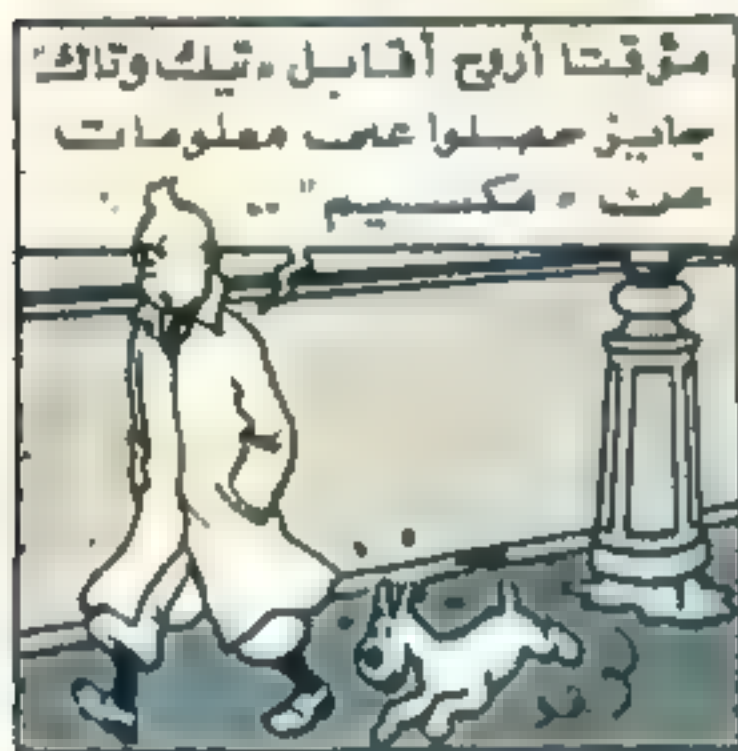 مؤقتا أروح أقابل "تيك وتاك"
جايز حصلوا على معلومات
عن "مكسيم" ..